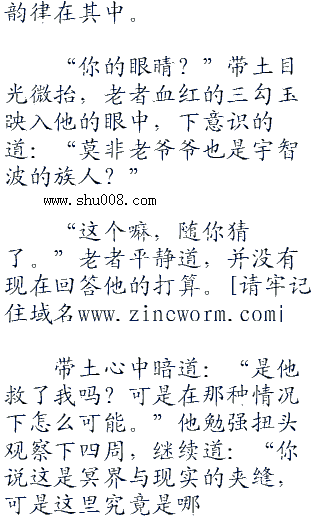 韵律在其中。
“你的眼睛？”带土目
光微抬，老者血红的三勾玉
映入他的眼中，下意识的
道：“莫非老爷爷也是宇智
波的族人？”
www.shu008.com
“这个嘛，随你猜
了。”老者平静道，并没有
现在回答他的打算。[请牢记
住域名www.zincworm.com|
带土心中暗道：“是他
救了我吗？可是在那种情况
下怎么可能。”他勉强扭头
观察下四周，继续道：“你
说这是冥界与现实的夹缝，
可是这里究竟是哪